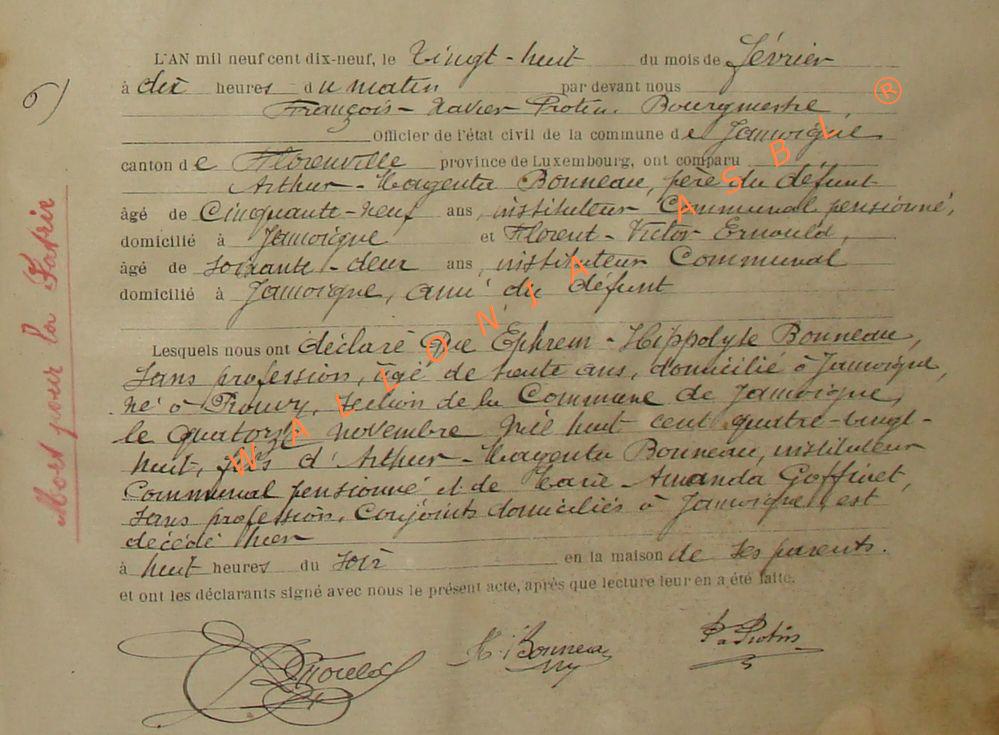 6)
L'AN mil neuf cent dix-neuf, le Vingt-huit du mois de février
à dix heures du matin par devant nous
François-Xavier Protin, Bourgmestre,
Officier de l'état civil de la commune de Jamoigne
canton de Florenville province de Luxembourg, ont comparu
Arthur-Magenta Bonneau, père du défunt
âgé de Cinquante-neuf ans, instituteur Communal pensionné,
domicilié à Jamoigne et Florent-Victor Ernould,
âgé de soixante-deux ans, instituteur Communal
domicilié à Jamoigne, ami du défunt
Lesquels nous ont déclaré Que Ephrem-Hippolyte Bonneau,
sans profession, âgé de trente ans, domicilié à Jamoigne,
né à Prouvy, section de la Commune de Jamoigne,
le quatorze novembre mil huit cent quatre-vingt-
huit, fils d'Arthur-Magenta Bonneau, instituteur
Communal pensionné et de Marie-Amanda Goffinet,
sans profession, Conjoints domiciliés à Jamoigne, est
décédé hier
à huit heures du soir en la maison de ses parents.
et ont les déclarants signé avec nous le présent acte, après que lecture leur en a été faite.
Bonneau
Protin
Mort pour la Patrie
WALLONIA ASBL ®